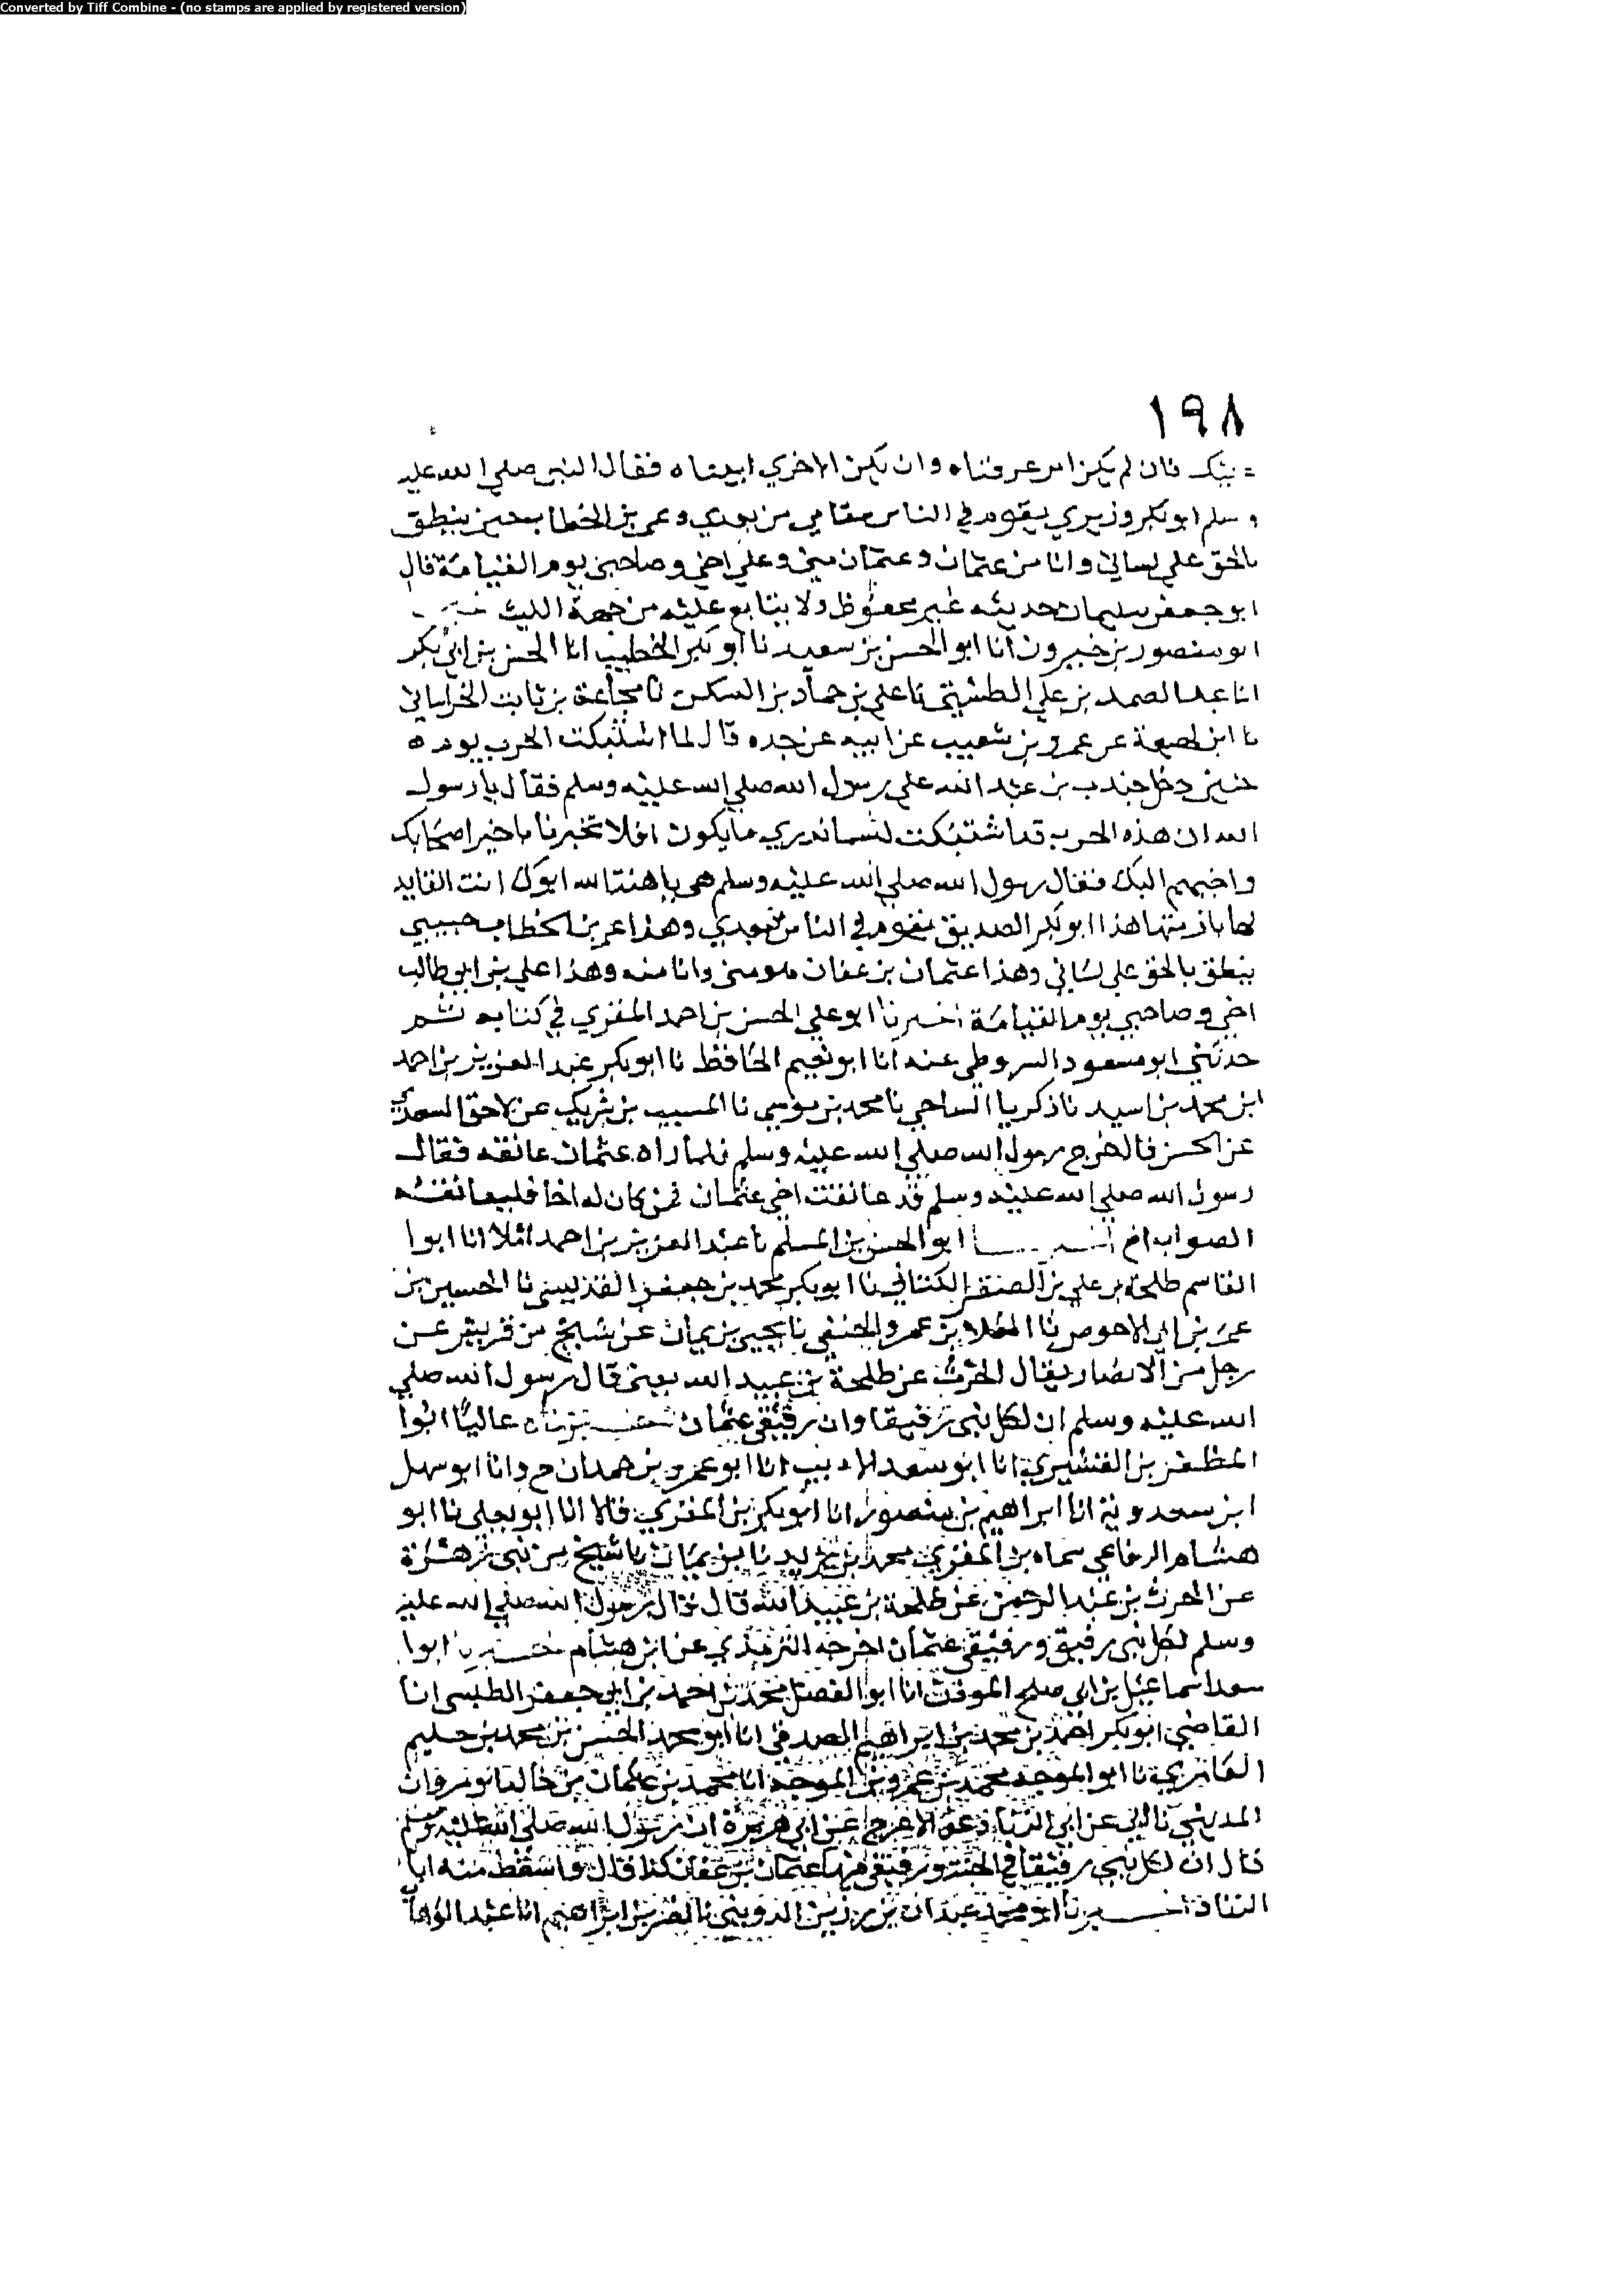 Converted by Tiff Combine - (no stamps are applied by registered version)
١٩٨
فان لم يكن امر عرفناه وان تكن الاخري ابيناه فقال النبي صلي الله عليه
وسلم ابو بكر وزيري يقوم في الناس مقامي من بعدي وعمر بن الخطاب ينطق
بالحق علي لساني وانا من عثمان وعثمان مني وعلي اخي وصاحبي يوم القيامة قال
ابو جعفر سليمان حديثه غير محفوظ ولا يتابع عليه من جهة الليث
ابو منصور بن خيرون انا ابو الحسن بن سعيد نا ابو بكر الخطيب انا الحسن بن ابي بكر
انا عبد الصمد بن علي الطشتي نا علي بن حماد بن السكن نا مجاعة بن ثابت الخراساني
نا ابن لهيعة عن عمرو بن شعيب عن ابيه عن جده قال لما اشتبكت الحرب يوم
حنين دخل جندب بن عبد الله علي رسول الله صلي الله عليه وسلم فقال يا رسول
الله ان هذه الحرب قد اشتبكت لسنا ندري ما يكون افلا تخبرنا باخير اصحابك
واحبهم اليك فقال رسول الله صلي الله عليه وسلم هي يا هنتاه لله ابوك انت القايد
لها بازمتها هذا ابو بكر الصديق يقوم في الناس من بعدي وهذا عمر بن الخطاب حبيبي
ينطق بالحق علي لساني وهذا عثمان بن عفان هو مني وانا منه وهذا علي بن ابي طالب
اخي وصاحبي يوم القيامة اخبرنا ابو علي الحسن بن احمد المقري في كتابه ثم
حدثني ابو مسعود عنه انا ابو نعيم الحافظ نا ابو بكر عبد العزيز بن احمد
ابن محمد بن اسيد نا زكريا الساجي نا محمد بن موسي نا المسيب بن شريك عن لاحق السعدي
عن الحسن قال خرج رسول الله صلي الله عليه وسلم فلما راه عثمان عانقه فقال
رسول الله صلي الله عليه وسلم قد عانقت اخي عثمان فمن كان له اخا فليعانقه
الصواب اخ اخبرنا ابو الحسن بن المسلم نا عبد العزيز بن احمد املا انا ابوا
القاسم طلحة بن علي بن الصقر الكتاني نا ابو بكر محمد بن جعفر نا الحسين بن
عمر بن ابي الاحوص نا العلا بن عمرو الحنفي نا يحيي بن يمان عن شيخ من قريش عن
رجل من الانصار يقال الحرث عن طلحة بن عبيد الله يعني قال رسول الله صلي
الله عليه وسلم ان لكل نبي رفيقا وان رفيقي عثمان اخبرناه عاليا ابوا
المظفر بن القشيري انا ابو سعد الاديب انا ابو عمرو بن حمدان ح وانا ابو سهل
ابن سعدوية انا ابراهيم بن منصور انا ابو بكر بن المقري قالا انا ابو يعلي نا ابو
هشام الرفاعي سماه بن المقري محمد بن يزيد نا بن يمان نا شيخ من بني زهرة
عن الحرث بن عبد الرحمن عن طلحة بن عبيد الله قال قال رسول الله صلي الله عليه
وسلم لكل نبي رفيق ورفيقي عثمان اخرجه الترمذي عن ابن هشام اخبرنا ابوا
سعد اسماعيل بن ابي صلح الموذن انا ابو الفضل محمد بن احمد بن ابي جعفر الطبسي انا
القاضي ابو بكر احمد بن محمد بن ابراهيم الصدفي انا ابو محمد الحسن بن محمد بن حليم
نا ابو الموجه محمد بن عمرو بن الموجه انا محمد بن عثمان بن خالد ابو مروان
المديني نا ابي عن ابي الزناد عن الاعرج عن ابي هريرة ان رسول الله صلي الله عليه وسلم
قال ان لكل نبي رفيقا في الجنة ورفيقي فيها عثمان بن عفان كذا قال واسقط منه ابا
الزناد اخبرنا ابو محمد عبدان بن رزين الدويني نا نصر بن ابراهيم انا عبد الوهاب